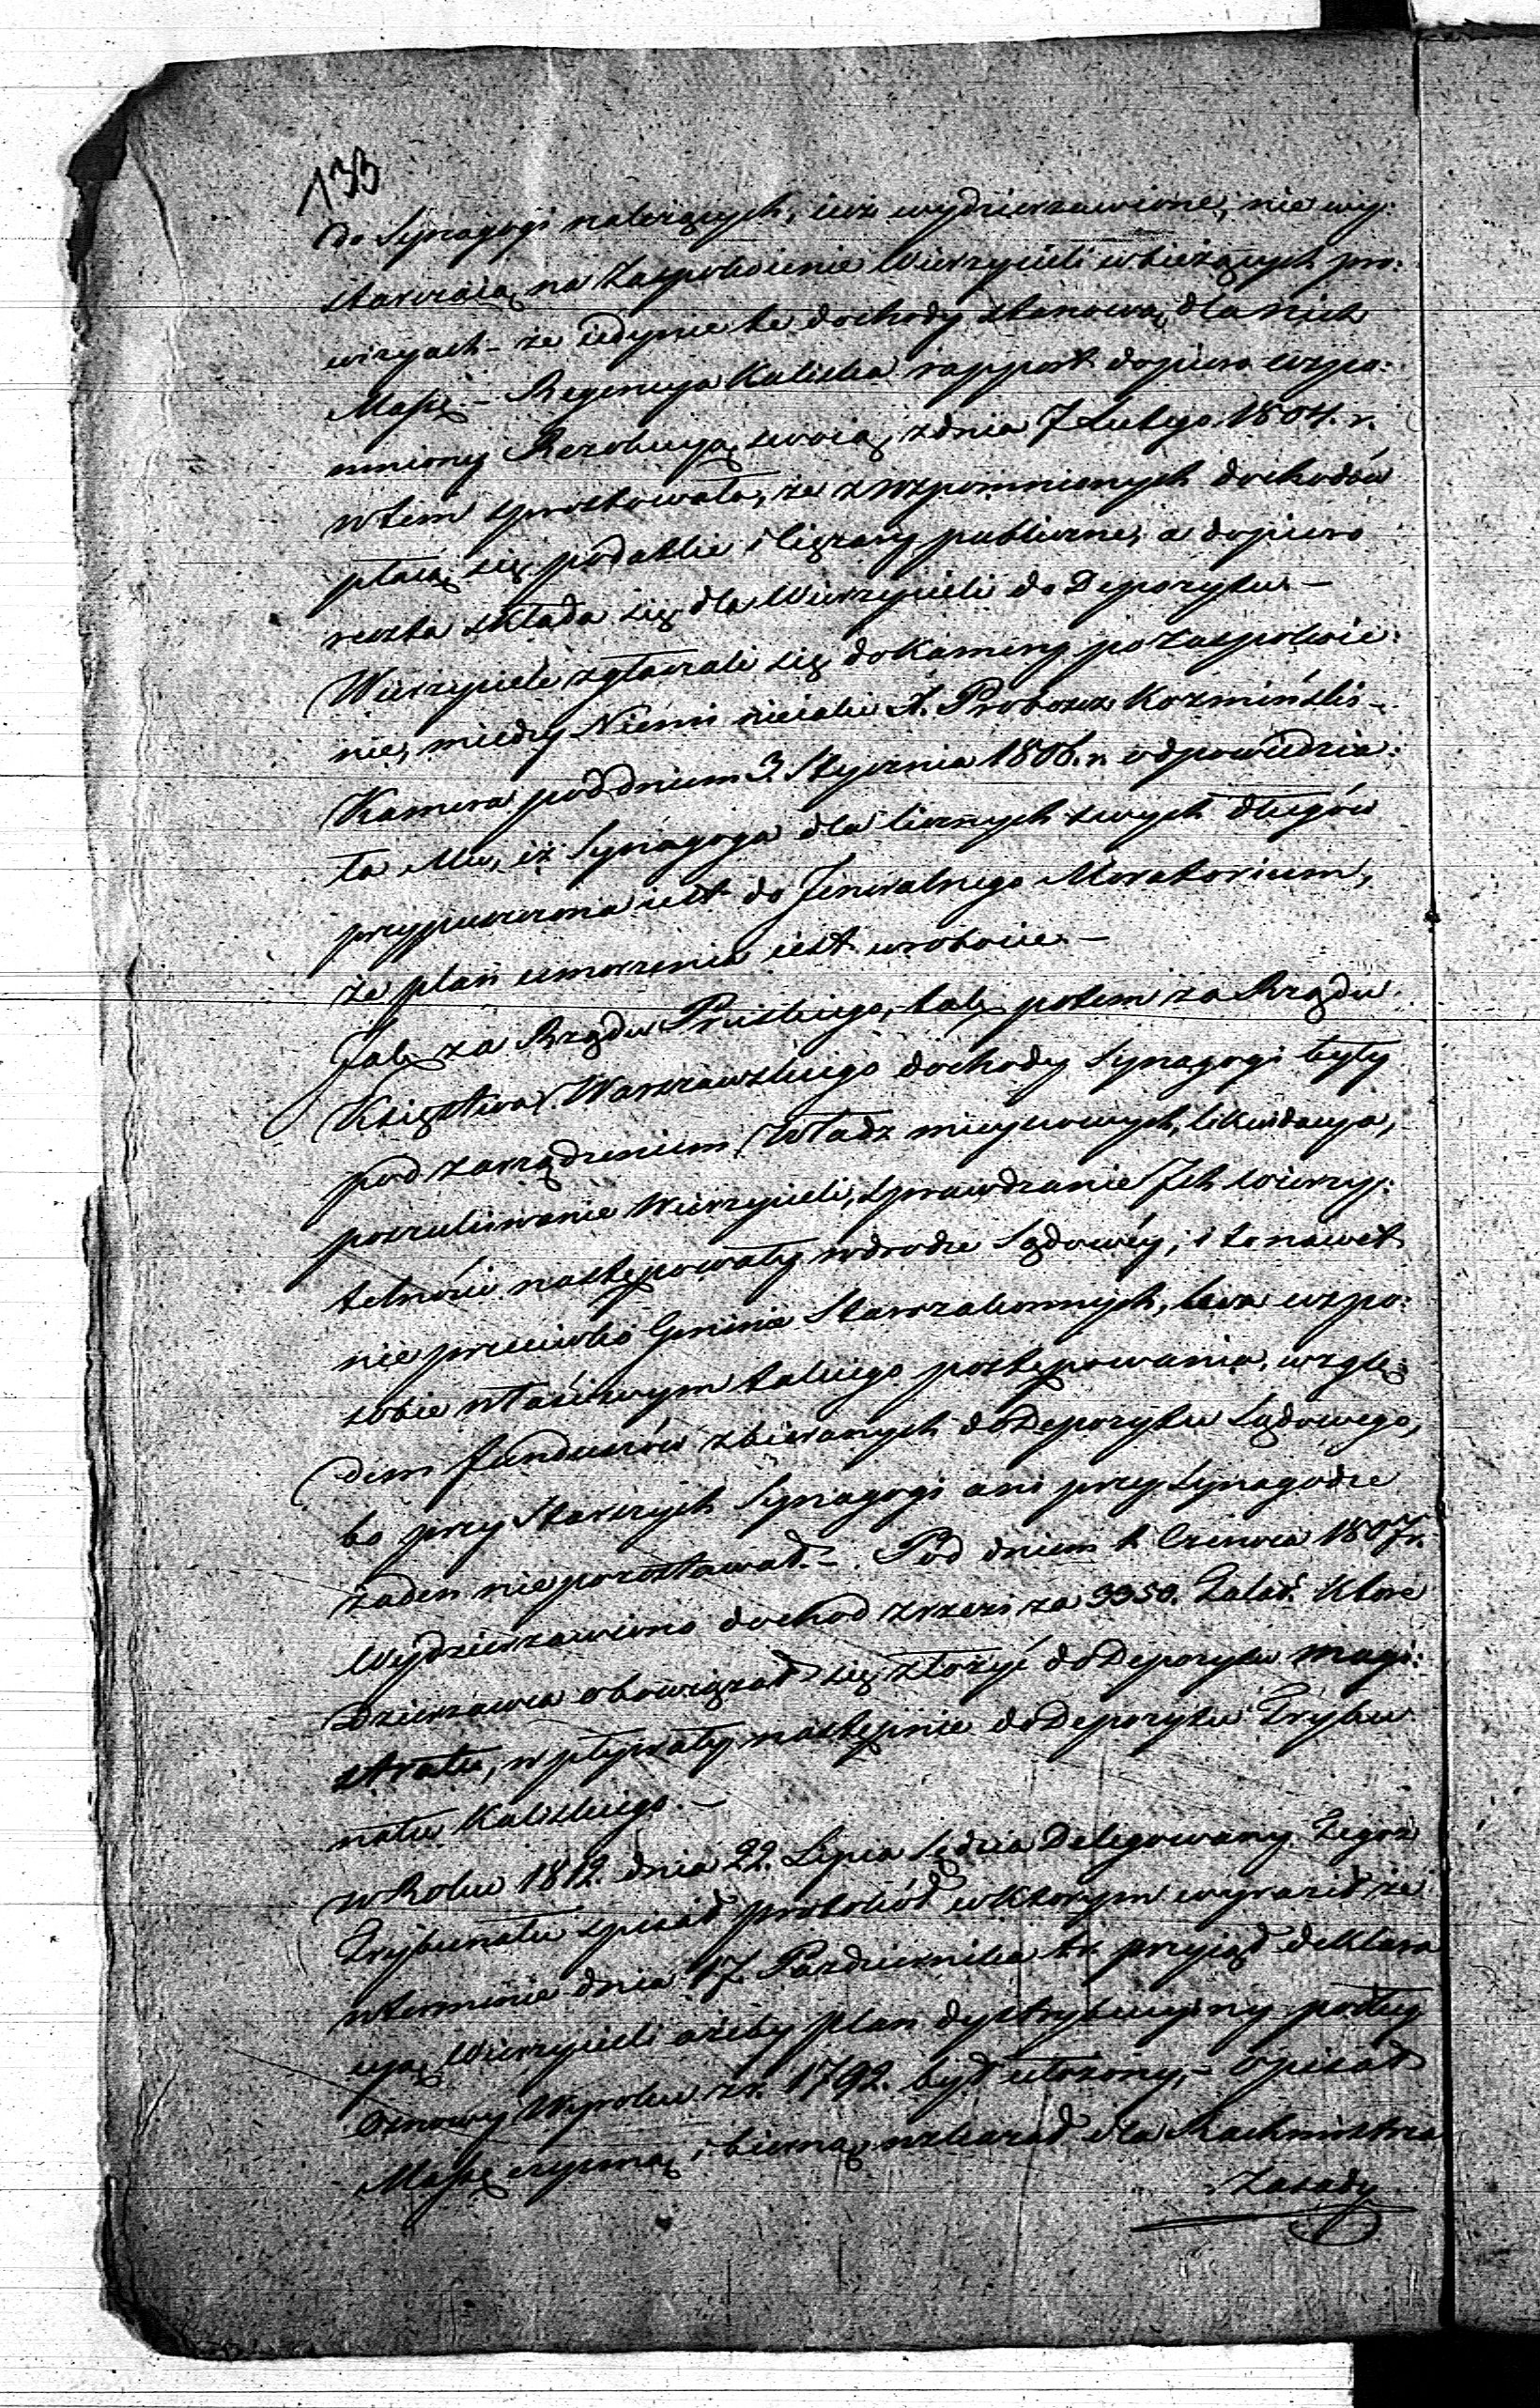 133
do Synagogi należących, iuż wydzierzawione, nie wy:
starczaią na Zaspokoienie Wierzycieli w bieżących pro:
wizyach – że iedynie te dochody stanowią dla nich
Massę – Regencya Kaliska rapport dopiero wspo:
mniony Rezolucyą swoią z dnia 7 Lutego 1804. r.
w tem sprostowała, że z wspomnionych dochodów
płacą się podatki i ciężary publiczne, a dopiero
reszta składa się dla Wierzycieli do Depozytu –
Wierzyciele zgłaszali się do Kamery po Zaspokoie:
nie, miedzy Niemi nieiaki X. Proboszcz Kozmiński –
Kamera pod dniem 3. Stycznia 1806. r. odpowiedzia:
ła Mu, iż Synagoga dla licznych swych długów
przypuszczona iest do Jeneralnego Moratorium,
że plan umorzenia iest w robocie –
Jak za Rządu Pruskiego, tak potem za Rządu
Księstwa Warszawskiego dochody Synagogi były
pod zarządzeniem Władz mieyscowych, likwidacya,
poszukiwanie Wierzycieli, sprawdzanie Ich wierzy:
telności następowały w drodze Sądowéy, i to nawet
nie przeciwko Gminie Starozakonnych, lecz w spo:
sobie właściwym takiego postępowania, wzglę:
dem funduszów zbieranych do Depozytu Sądowego,
bo przy Starszych Synagogi ani przy Synagodze
żaden nie pozostawał. – Pod dniem 1 Czerwca 1807 r.
Wydzierzawiono dochod z rzezi za 3350. Talar. Które
Dzierzawca obowiązał się złożyć do Depozytu magi:
stratu, wpływały następnie do Depozytu Trybu
nału Kaliskiego. –
w Roku 1812. dnia 22. Lipca Sędzia Delegowany Tegoż
Trybunału spisał protokół w którym wyraził że
w terminie dnia 17. Pazdziernika t. r. przyiął deklara
cyą Wierzycieli ażeby plan dystrybucyiny podług
Osnowy Wyroku z r. 1792. był ułożony, – opisał
Massę czynną i bierną wskazał dla Rachmistrza
Zasady